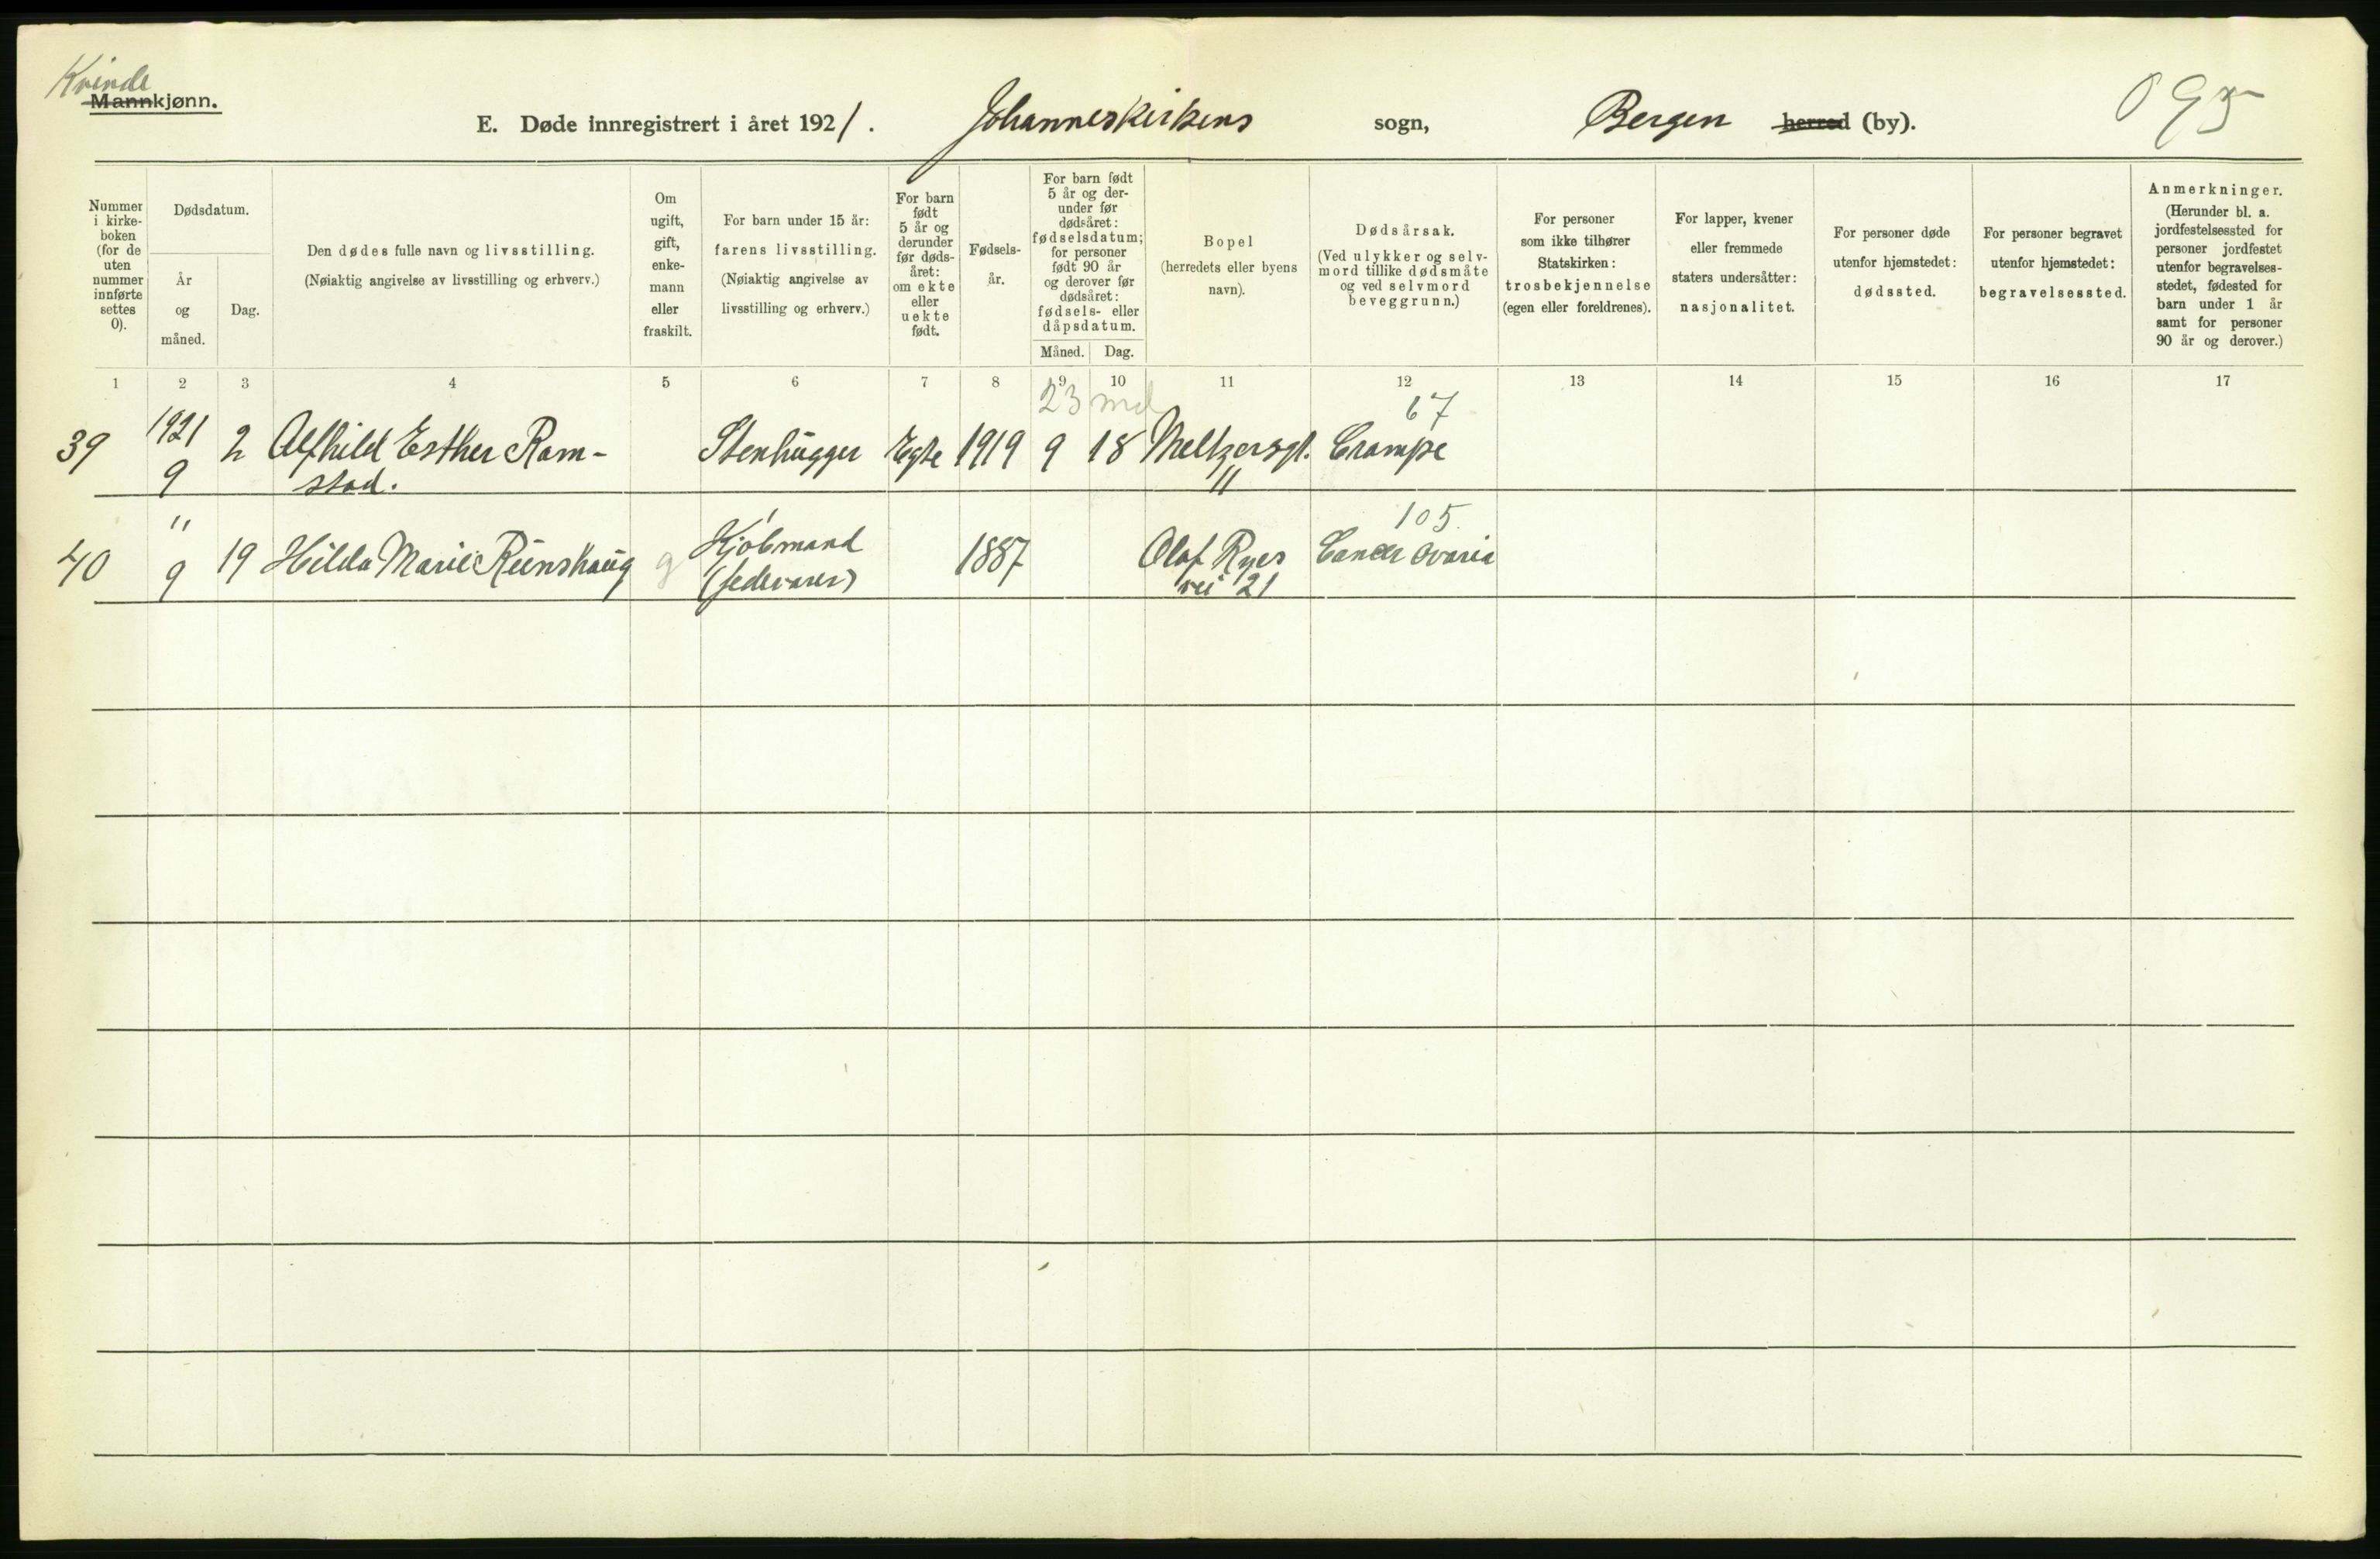 Kvinde
Mannkjønn.
E. Døde innregistrert i året 1921. Johanneskirkens sogn, Bergen herred (by).
095
Nummer
i kirke-
boken
(for de
uten
nummer
innførte
settes
0).
Dødsdatum.
År
og
måned.
Dag.
Den dødes fulle navn og livsstilling.
(Nøiaktig angivelse av livsstilling og erhverv.)
Om
ugift,
gift,
enke-
mann
eller
fraskilt.
For barn under 15 år:
farens livsstilling.
(Nøiaktig angivelse av
livsstilling og erhverv.)
For barn
født
5 år og
derunder
før døds-
året:
om ekte
eller
uekte
født.
Fødsels-
år.
For barn født
5 år og der-
under før
dødsåret:
fødselsdatum;
for personer
født 90 år
og derover før
dødsåret:
fødsels- eller
dåpsdatum.
Måned. Dag.
Bopel
(herredets eller byens
navn).
Dødsårsak.
(Ved ulykker og selv-
mord tillike dødsmåte
og ved selvmord
beveggrunn.)
For personer
som ikke tilhører
Statskirken:
trosbekjennelse
(egen eller foreldrenes).
For lapper, kvener
eller fremmede
staters undersåtter:
nasjonalitet.
For personer døde
utenfor hjemstedet:
dødssted.
For personer begravet
utenfor hjemstedet:
begravelsessted.
Anmerkninger.
(Herunder bl. a.
jordfestelsessted for
personer jordfestet
utenfor begravelses-
stedet, fødested for
barn under 1 år
samt for personer
90 år og derover.)
1 2 3 4 5 6 7 8 9 10 11 12 13 14 15 16 17
23 md 67
39 1921 2 Alfhild Esther Ram- Stenhugger Egte 1919 9 18 Meltzersgt. Crampe
9 stad. 11
" 105.
40 9 19 Hilda Marie Runshaug g Kjøbmand 1887 Olaf Ryes Cancer ovaria
(fedevarer) vei 21